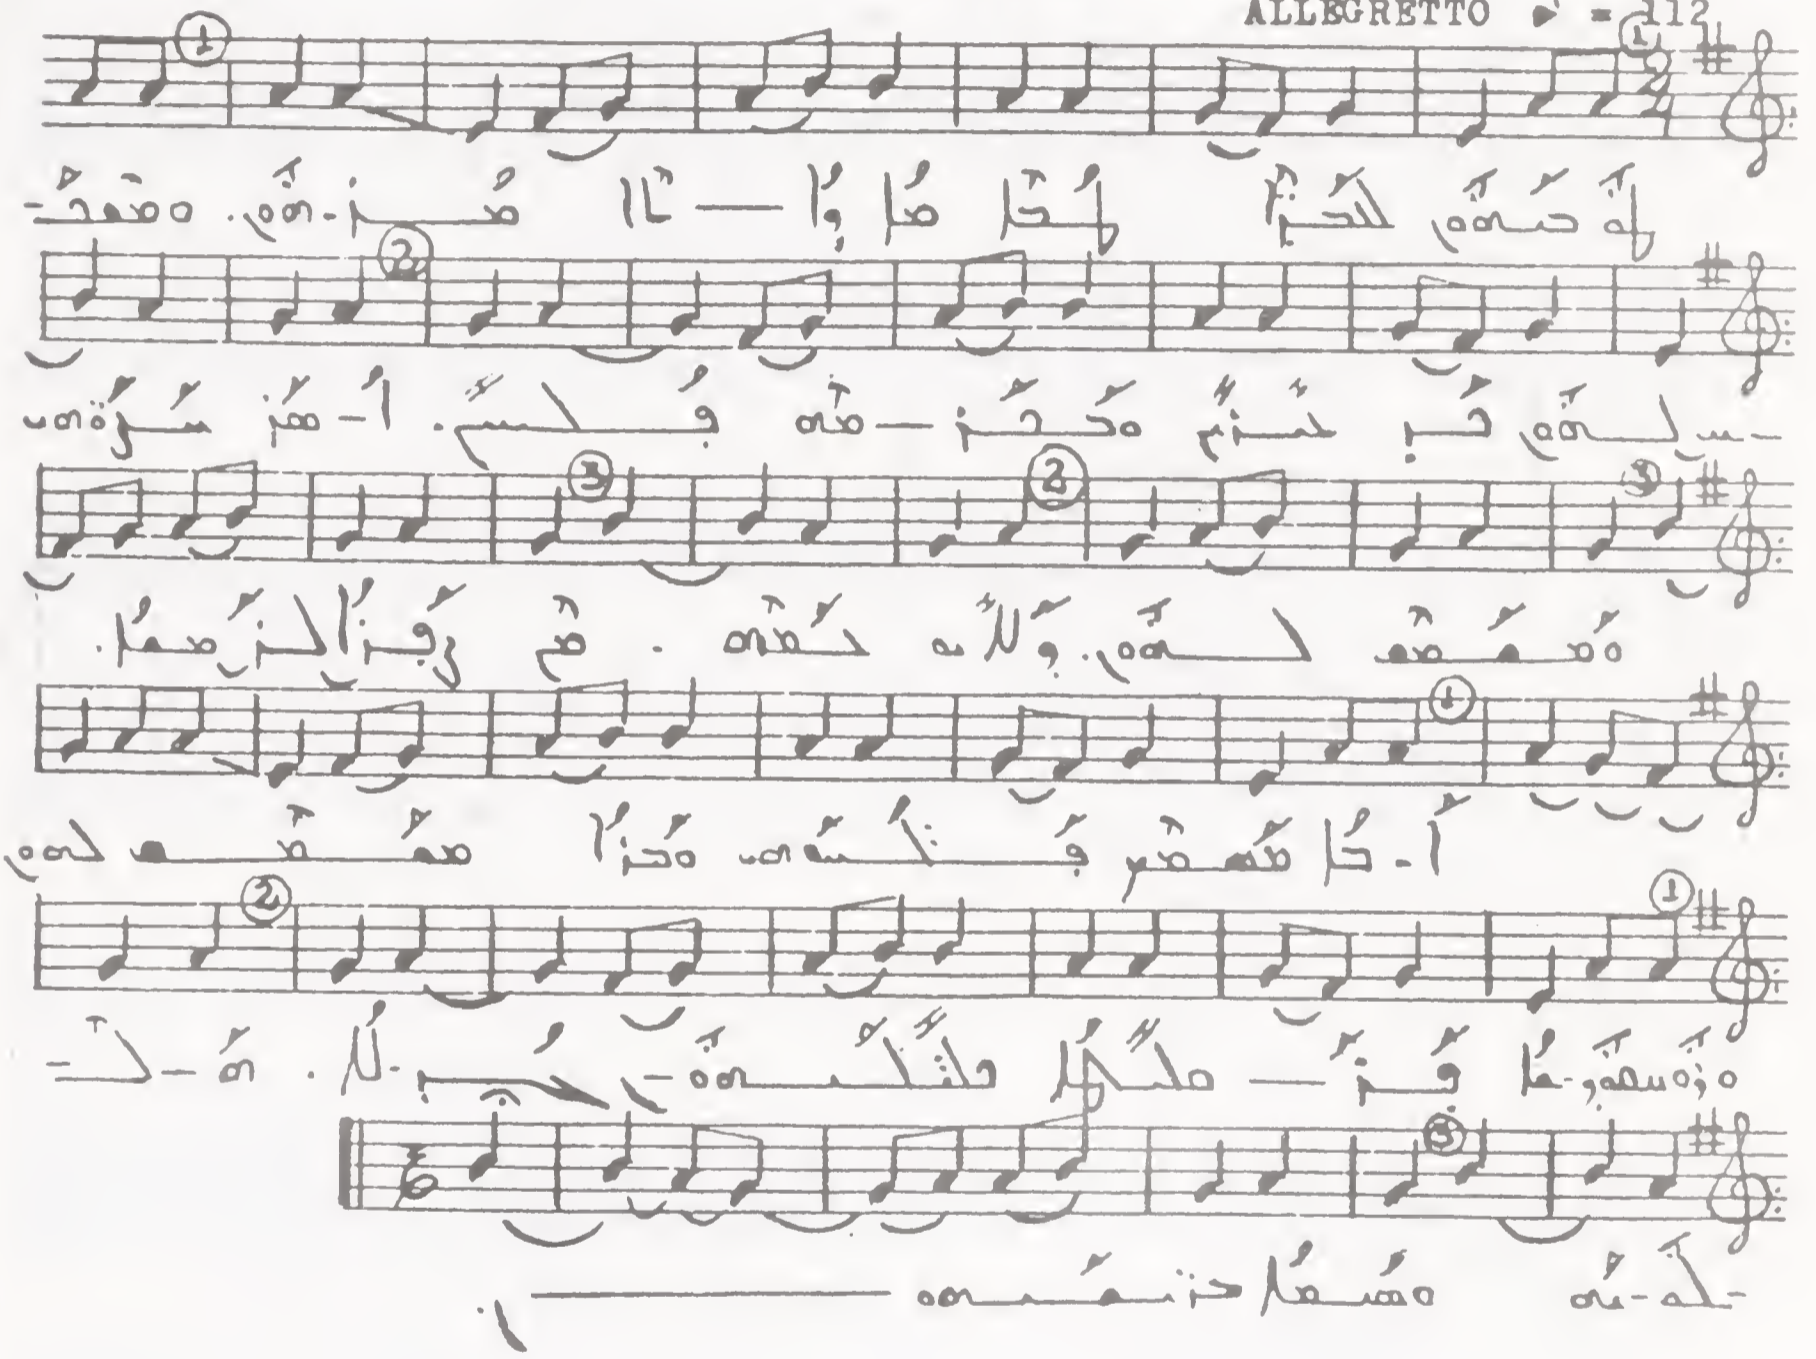 ALLEGRETTO ♪ = 112
ܛܘܒܝܗܘܢ ܠܥܒܕܐ ܛܒܐ ܡܐ ܕܐ — ܬܐ ܡܪ-ܗܘܢ. ܘܡܫܟܚ-
-ܚ ܠܗܘܢ ܟܕ ܥܝܪܝܢ ܘܒܟܪ — ܡܗ ܦܠܚܝܢ. ܐ-ܣܪ ܚܨܘܗܝ
ܘܡܫܡܫ ܠܗܘܢ. ܕܠܐܝܘ ܥܡܗ. ܡܢ ܨܦܪܐ ܠܪܡܫܐ.
ܐ-ܒܐ ܡܣܡܟ ܦܠܚܘܗܝ ܘܒܪܐ ܡܫܡܫ ܠܗܘܢ
ܘܪܘܚܩܘܕ-ܫܐ ܦܪ — ܩܠܝܛܐ ܟܠܝܠܝܗܘ-ܢ ܓܕ-ܠܐ. ܗ-ܠ-
-ܠܘ-ܝܗ ܘܣܝܡܐ ܒܪܝܫܝܗܘ — ܢ.